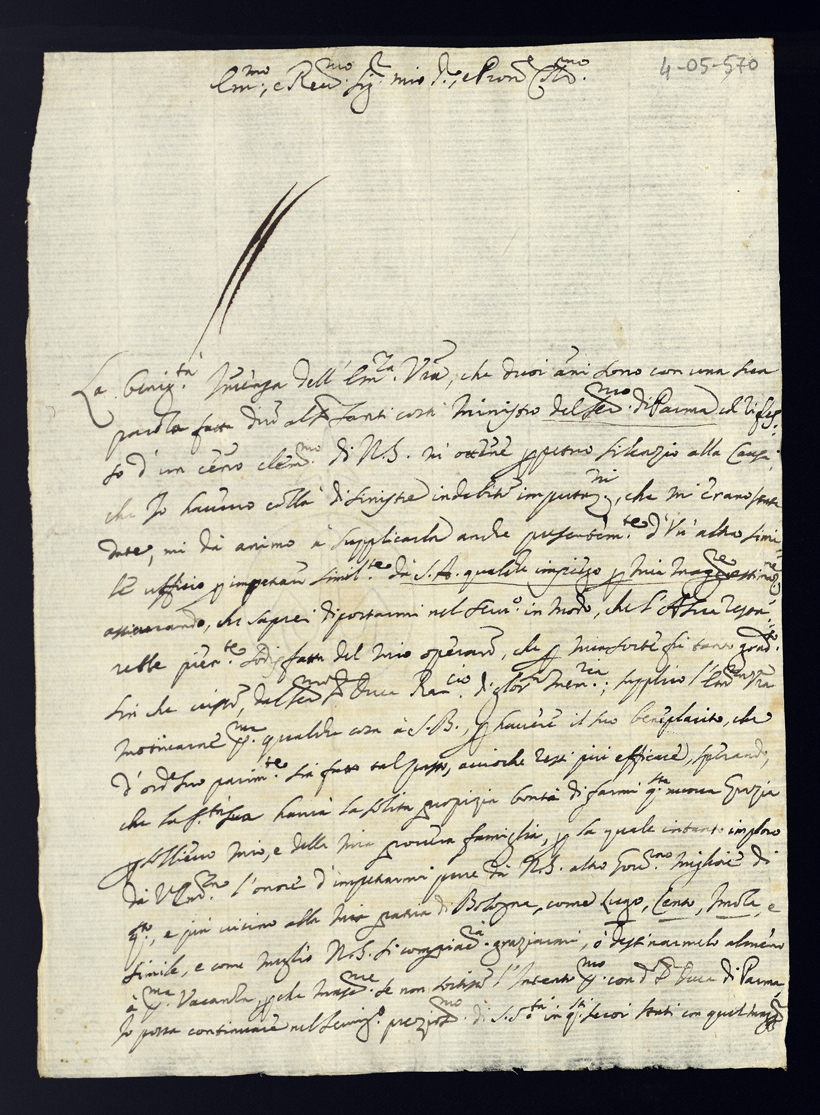 4-05-570
Em.mo, e Rev.mo Sig.r mio S.r, e Pron.e Col.mo
La benig.tà immensa dell'Em.za V.ra, che duoi anni sono con una sua
parola fatta dire al Conti costì Ministro del Ser.mo di Parma col rifles
so d'un cenno clem.mo di N.S. mi ottenne perpetuo silenzio alla Causa
che Io havevo costà di sinistre indebite imputaz.ni, che mi erano state
date, mi dà animo à supplicarla anche presentem.te d'Un altro simi
le uffizio per impetrare simil.te da S.A. qualche impiego per mia mag.re
assicurando, che saprei diportarmi nel Serv.o in modo, che l'A. Sua reste
rebbe pien.te sodisfatta del mio operare, che per mia sorte fù tanto grad.
sin che visse, dal Ser.mo S.r Duca Ran.cio di glor. mem.ria; supplico l'Em.za V.ra
motivarne qualche cosa à S.B. per havere il suo beneplacito, che
d'ord.e suo parim.te sia fatto tal passo, accioche resti più efficace, sperando,
che la S.tà Sua havrà la solita propizia bontà di farmi q.sta nuova Grazia
per sollievo mio, e della mia povera famiglia, per la quale intanto imploro
da V.Em.za l'onore d'impetrarmi pure da N.S. altro Gov.no migliore di
q.to, e più vicino alla mia patria di Bologna, come Lugo, Cento, Imola, e
simile, e come meglio N.S. si compiacerà graziarmi, ò destinarmelo almeno
à p.ma Vacanza, per che mass.me se non sortisse l'Intento con d.o S.r Duca di Parma,
Io possa continuare nel Servig.o prezios.mo di S.S.tà in q.sti suoi Stati con quel